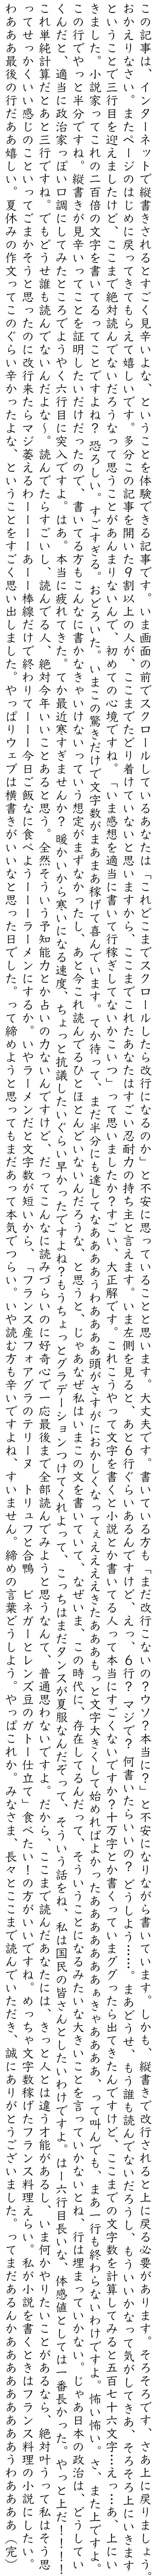 この記事は、インターネットで縦書きされるとすごく見辛いよな、ということを体験できる記事です。いま画面の前でスクロールしているあなたは「これどこまでスクロールしたら改行になるのか」と不安に思っていることと思います。大丈夫です。書いている方も「まだ改行こないの？ウソ？本当に？」と不安になりながら書いています。しかも、縦書きで改行されると上に戻る必要があります。そろそろです、さあ上に戻りましょう。
おかえりなさい。またページのはじめに戻ってきてもらえて嬉しいです。多分この記事を開いた9割以上の人が、ここまでたどり着けていないと思いますから、ここまでこれたあなたはすごい忍耐力の持ち主と言えます。いま左側を見ると、あと6行ぐらいあるんですけど、えっ、6行？マジで？何書いたらいいの？どうしよう……。まあどうせ、もう誰も読んでないだろうし、もういいかなって気がしてきあ、そろそろ上にいきます
ということで三行目を迎えましたけど、ここまで絶対読んでないだろうなって思うことがあんまりないんで、初めての心境ですね。「いま感想を適当に書いて行稼ぎしてないかこいつ」って思いましたか？すごい、大正解です。これこうやって文字を書くと小説とか書いてる人って本当にすごくないですか？十万字とか書くっていまググったら出てきたんですけど、ここまでの文字数を計算してみると五百七十六文字…えっ…あ、上にい
きました。小説家ってこれの二百倍の文字を書いてるってことですよね？恐ろしい。すごすぎる。おどろいた。いまこの驚きだけで文字数がまあまあ稼げて喜んでいます。てか待って、まだ半分にも達してなああああうわああああ頭がさすがにおかしくなってぇえええきたあああもっと文字大きくして始めればよかったあああああぁきゃああああ、って叫んでも、まあ一行も終わらないわけですよ。怖い怖い。さ、まだ上ですよ。
この行でやっと半分ですね。縦書きが見辛いってことを証明したいだけだったので、書いてる方もこんなに書かなきゃいけないっていう想定がまずなかったし、あと今これ読んでるひとほとんどいないんだろうな、と思うと、じゃあなぜ私はいまこの文を書いていて、なぜいま、この時代に、存在してるんだって、そういうことになるみたいな大きいことを言っていかないとね、行は埋まっていかない。じゃあ日本の政治は、どうしてい
くんだと、適当に政治家っぽい口調にしてみたところでようやく六行目に突入ですよ。はあ。本当に疲れてきた。てか最近寒すぎませんか？暖かいから寒いになる速度、ちょっと抗議したいぐらい早かったですよね？もうちょっとグラデーションつけてくれよって、こっちはまだタンスが夏服なんだぞって、そういう話をね、私は国民の皆さんとしたいわけですよ。はー六行目長いな、体感値としては一番長かった。やっと上だ！！！
これ単純計算だとあと三行ですね。でもどうせ誰も読んでないんだよな〜。読んでたらすごいし、読んでる人、絶対今年いいことあると思う。全然そういう予知能力とか占いの力ないんですけど、だってこんなに読みづらいのに好奇心で一応最後まで全部読んでみようと思うなんて、普通思わないですよ。だから、ここまで読んだあなたには、きっと人とは違う才能があるし、いま何かやりたいことがあるなら、絶対叶うって私はそう思
ってせっかくいい感じのこといってごまかそうと思ったのに改行来たらマジ萎えるわーーーあーー棒線だけで終わりてーー今日ご飯なに食べようーーーラーメンにするか。いやラーメンだと文字数が短いから、「フランス産フォアグラのテリーヌ　トリュフと合鴨　ビネガーとレンズ豆のガトー仕立て」食べたい！の方がいいですね。めっちゃ文字数稼げたフランス料理えらい。私が小説を書くときはフランス料理の小説にしたい。
わあああ最後の行だああ嬉しい。夏休みの作文ってこのぐらい辛かったよな、ということをすごく思い出しました。やっぱりウェブは横書きがいいなと思った日でした。って締めようと思ってもまだあって本気でつらい。いや読む方も辛いですよね、すいません。締めの言葉どうしよう。やっぱこれか、みなさま、長々とここまで読んでいただき、誠にありがとうございました。ってまだあるんかああああああああああうわああああ（完）